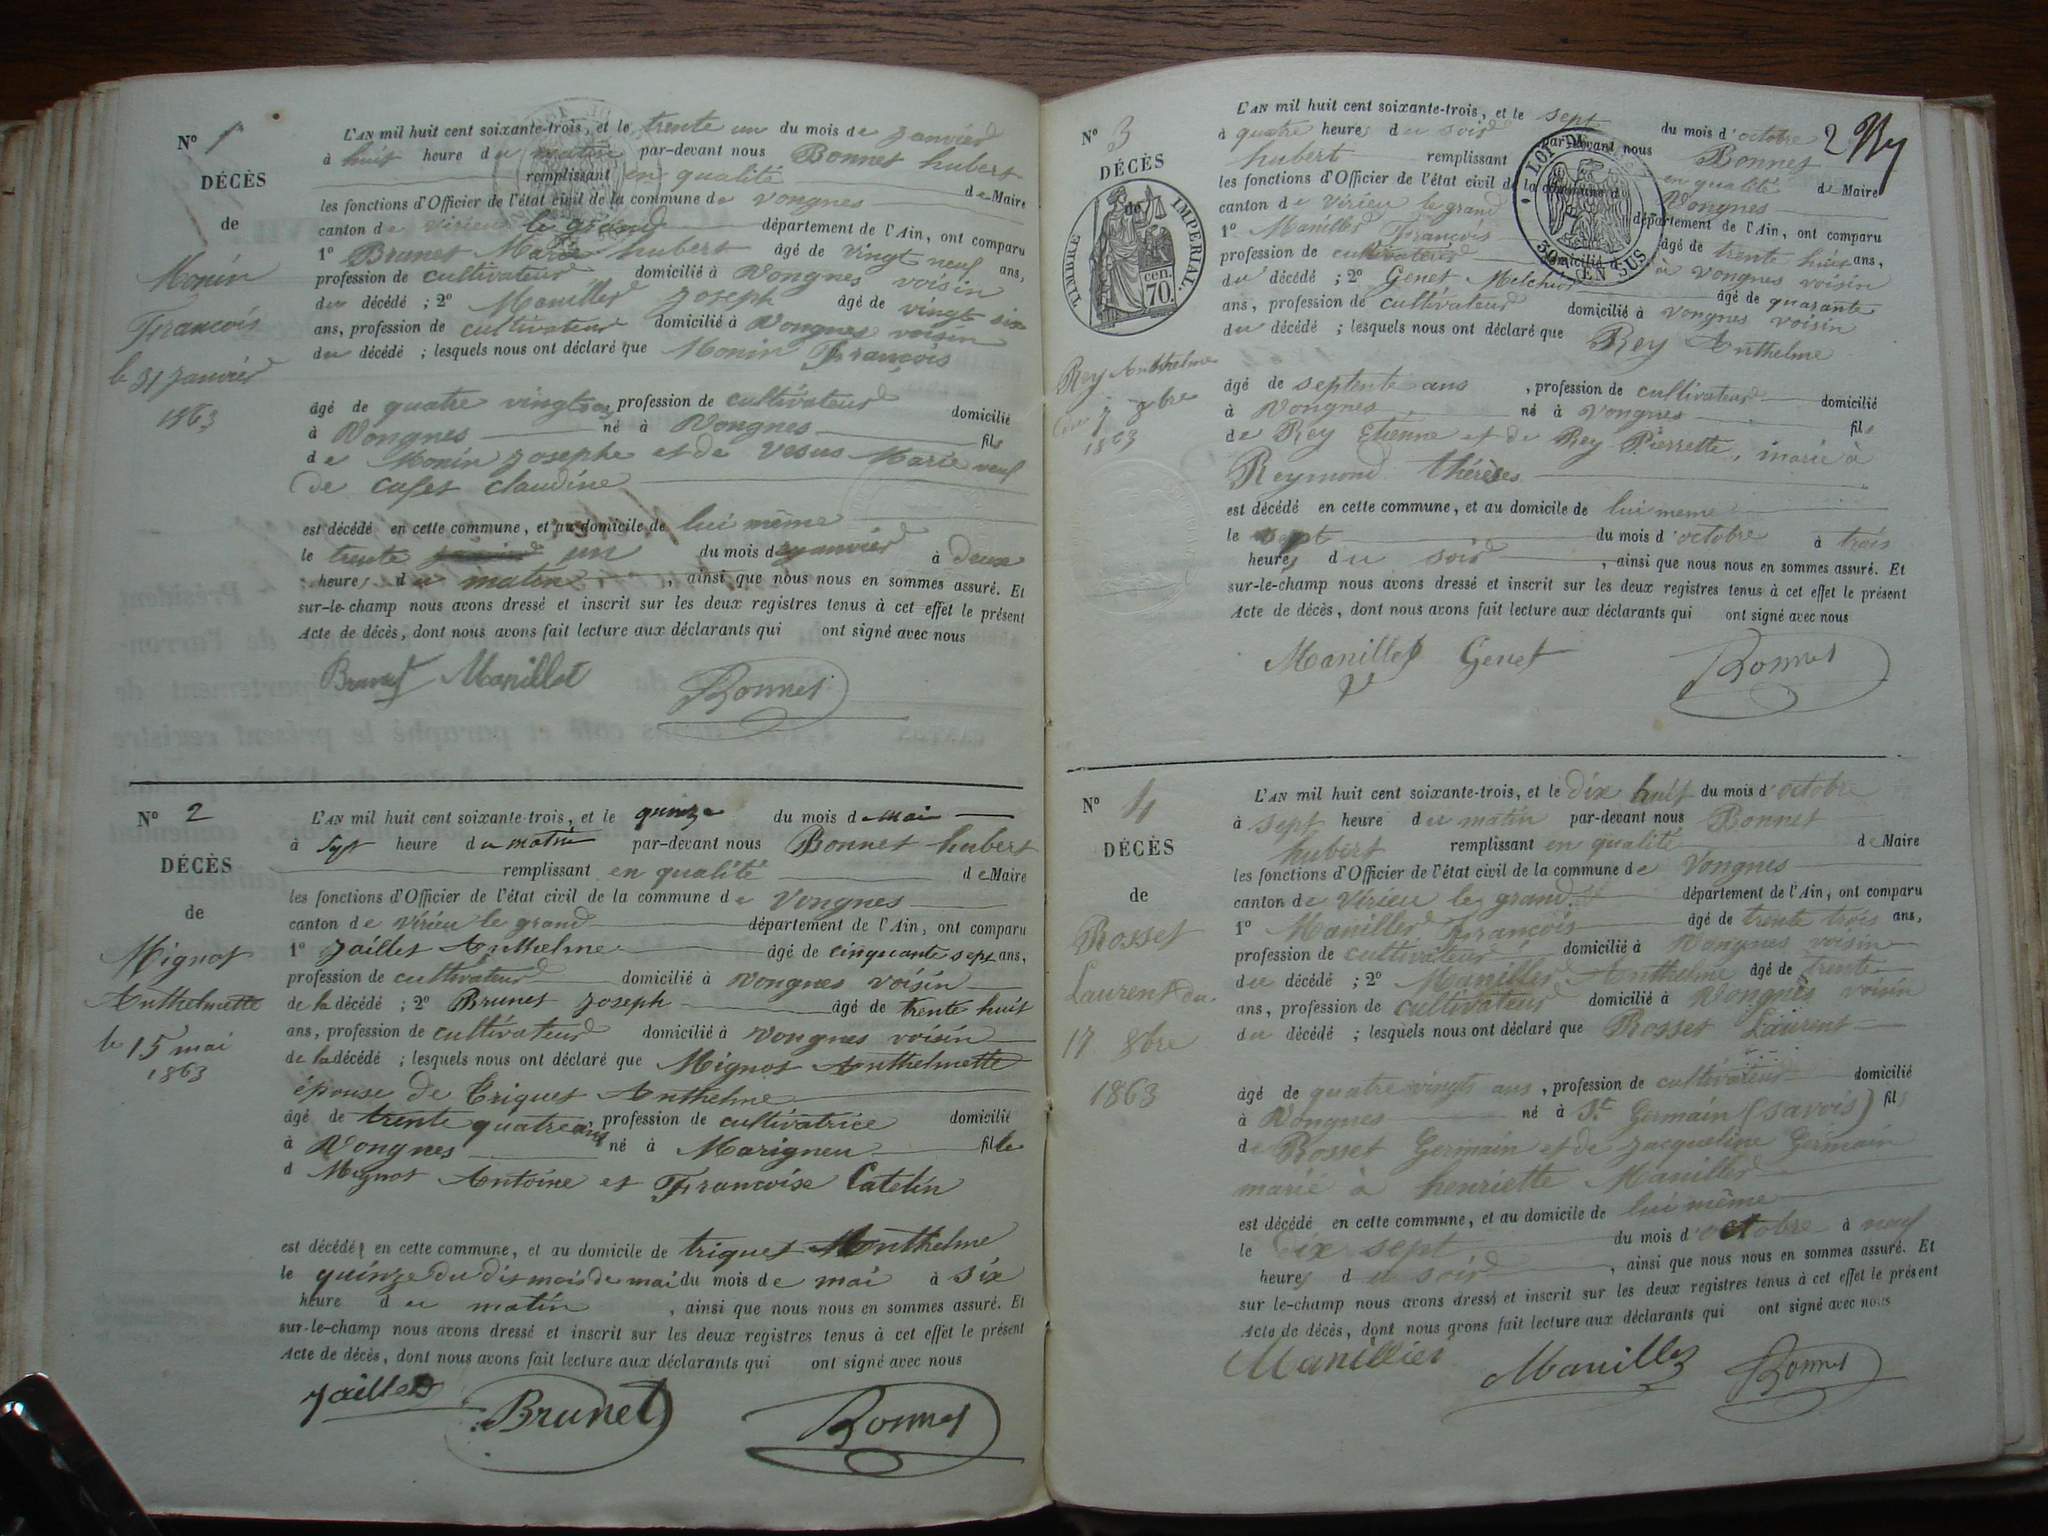 N° 1
DÉCÈS
de
Monin
François
le 31 janvier
1863
L'AN mil huit cent soixante-trois, et le trente un du mois de janvier
à huit heure du matin par-devant nous Bonnet hubert
remplissant en qualité de Maire
les fonctions d'Officier de l'état civil de la commune de Vongnes
canton de virieu le grand département de l'Ain, ont comparu
1° Brunet Marie hubert âgé de vingt neuf ans,
profession de cultivateur domicilié à Vongnes voisin
du décédé ; 2° Manillier Joseph âgé de vingt six
ans, profession de cultivateur domicilié à Vongnes voisin
du décédé ; lesquels nous ont déclaré que Monin François
âgé de quatre vingts profession de cultivateur domicilié
à Vongnes né à Vongnes fils
de Monin Josephe et de Marie veuf
de claudine
est décédé en cette commune, et au domicile de lui même
le trente un du mois de janvier à deux
heures du matin , ainsi que nous nous en sommes assuré. Et
sur-le-champ nous avons dressé et inscrit sur les deux registres tenus à cet effet le présent
Acte de décès, dont nous avons fait lecture aux déclarants qui ont signé avec nous
Brunet Manillet Bonnet
N° 2
DÉCÈS
de
Mignot
Anthelmette
le 15 mai
1863
L'AN mil huit cent soixante-trois, et le quinze du mois de mai
à sept heure du matin par-devant nous Bonnet hubert
remplissant en qualité de Maire
les fonctions d'Officier de l'état civil de la commune de Vongnes
canton de virieu le grand département de l'Ain, ont comparu
1° Jaillet Anthelme âgé de cinquante sept ans,
profession de cultivateur domicilié à Vongnes voisin
de la décédé ; 2° Brunet Joseph âgé de trente huit
ans, profession de cultivateur domicilié à Vongnes voisin
de la décédé ; lesquels nous ont déclaré que Mignot Anthelmette
épouse de Triquet Anthelme
âgé de trente quatre ans profession de cultivatrice domicilié
à Vongnes né à Marignieu fille
d Mignot Antoine et Francoise Catelin
est décédé en cette commune, et au domicile de triquet Anthelme
le quinze du dit mois de mai du mois de mai à six
heure du matin , ainsi que nous nous en sommes assuré. Et
sur-le-champ nous avons dressé et inscrit sur les deux registres tenus à cet effet le présent
Acte de décès, dont nous avons fait lecture aux déclarants qui ont signé avec nous
Jaillet Brunet Bonnet
N° 3
DÉCÈS
de
TIMBRE IMPÉRIAL
70 cen.
Rey Anthelme
7 8bre
1863
LOI DE
50% EN SUS
2
L'AN mil huit cent soixante-trois, et le sept du mois d'octobre
à quatre heures du soir par-devant nous Bonnet
hubert remplissant en qualité de Maire
les fonctions d'Officier de l'état civil de la commune de Vongnes
canton de virieu le grand département de l'Ain, ont comparu
1° Manillier François âgé de trente huit ans,
profession de cultivateur domicilié à Vongnes voisin
du décédé ; 2° Genet Melchior âgé de quarante
ans, profession de cultivateur domicilié à Vongnes voisin
du décédé ; lesquels nous ont déclaré que Rey Anthelme
âgé de septente ans , profession de cultivateur domicilié
à Vongnes né à Vongnes fils
de Rey Etienne et de Rey Pierrette, marié à
Reymond thérèse
est décédé en cette commune, et au domicile de lui meme
le sept du mois d'octobre à trois
heures du soir , ainsi que nous nous en sommes assuré. Et
sur-le-champ nous avons dressé et inscrit sur les deux registres tenus à cet effet le présent
Acte de décès, dont nous avons fait lecture aux déclarants qui ont signé avec nous
Manillier Genet Bonnet
N° 4
DÉCÈS
de
Rosset
Laurent du
17 8bre
1863
L'AN mil huit cent soixante-trois, et le dix huit du mois d'octobre
à sept heure du matin par-devant nous Bonnet
hubert remplissant en qualité de Maire
les fonctions d'Officier de l'état civil de la commune de Vongnes
canton de Virieu le grand département de l'Ain, ont comparu
1° Manillier François âgé de trente trois ans,
profession de cultivateur domicilié à Vongnes voisin
du décédé ; 2° Manillier Anthelme âgé de trente
ans, profession de cultivateur domicilié à Vongnes voisin
du décédé ; lesquels nous ont déclaré que Rosset Laurent
âgé de quatre vingts ans , profession de cultivateur domicilié
à Vongnes né à St Germain (Savois) fils
de Rosset Germain et de Jacqueline Germain
marié à henriette Manillier
est décédé en cette commune, et au domicile de lui même
le dix sept du mois d'octobre à neuf
heures du soir , ainsi que nous nous en sommes assuré. Et
sur le-champ nous avons dressé et inscrit sur les deux registres tenus à cet effet le présent
Acte de décès, dont nous avons fait lecture aux déclarants qui ont signé avec nous
Manillier Manillier Bonnet